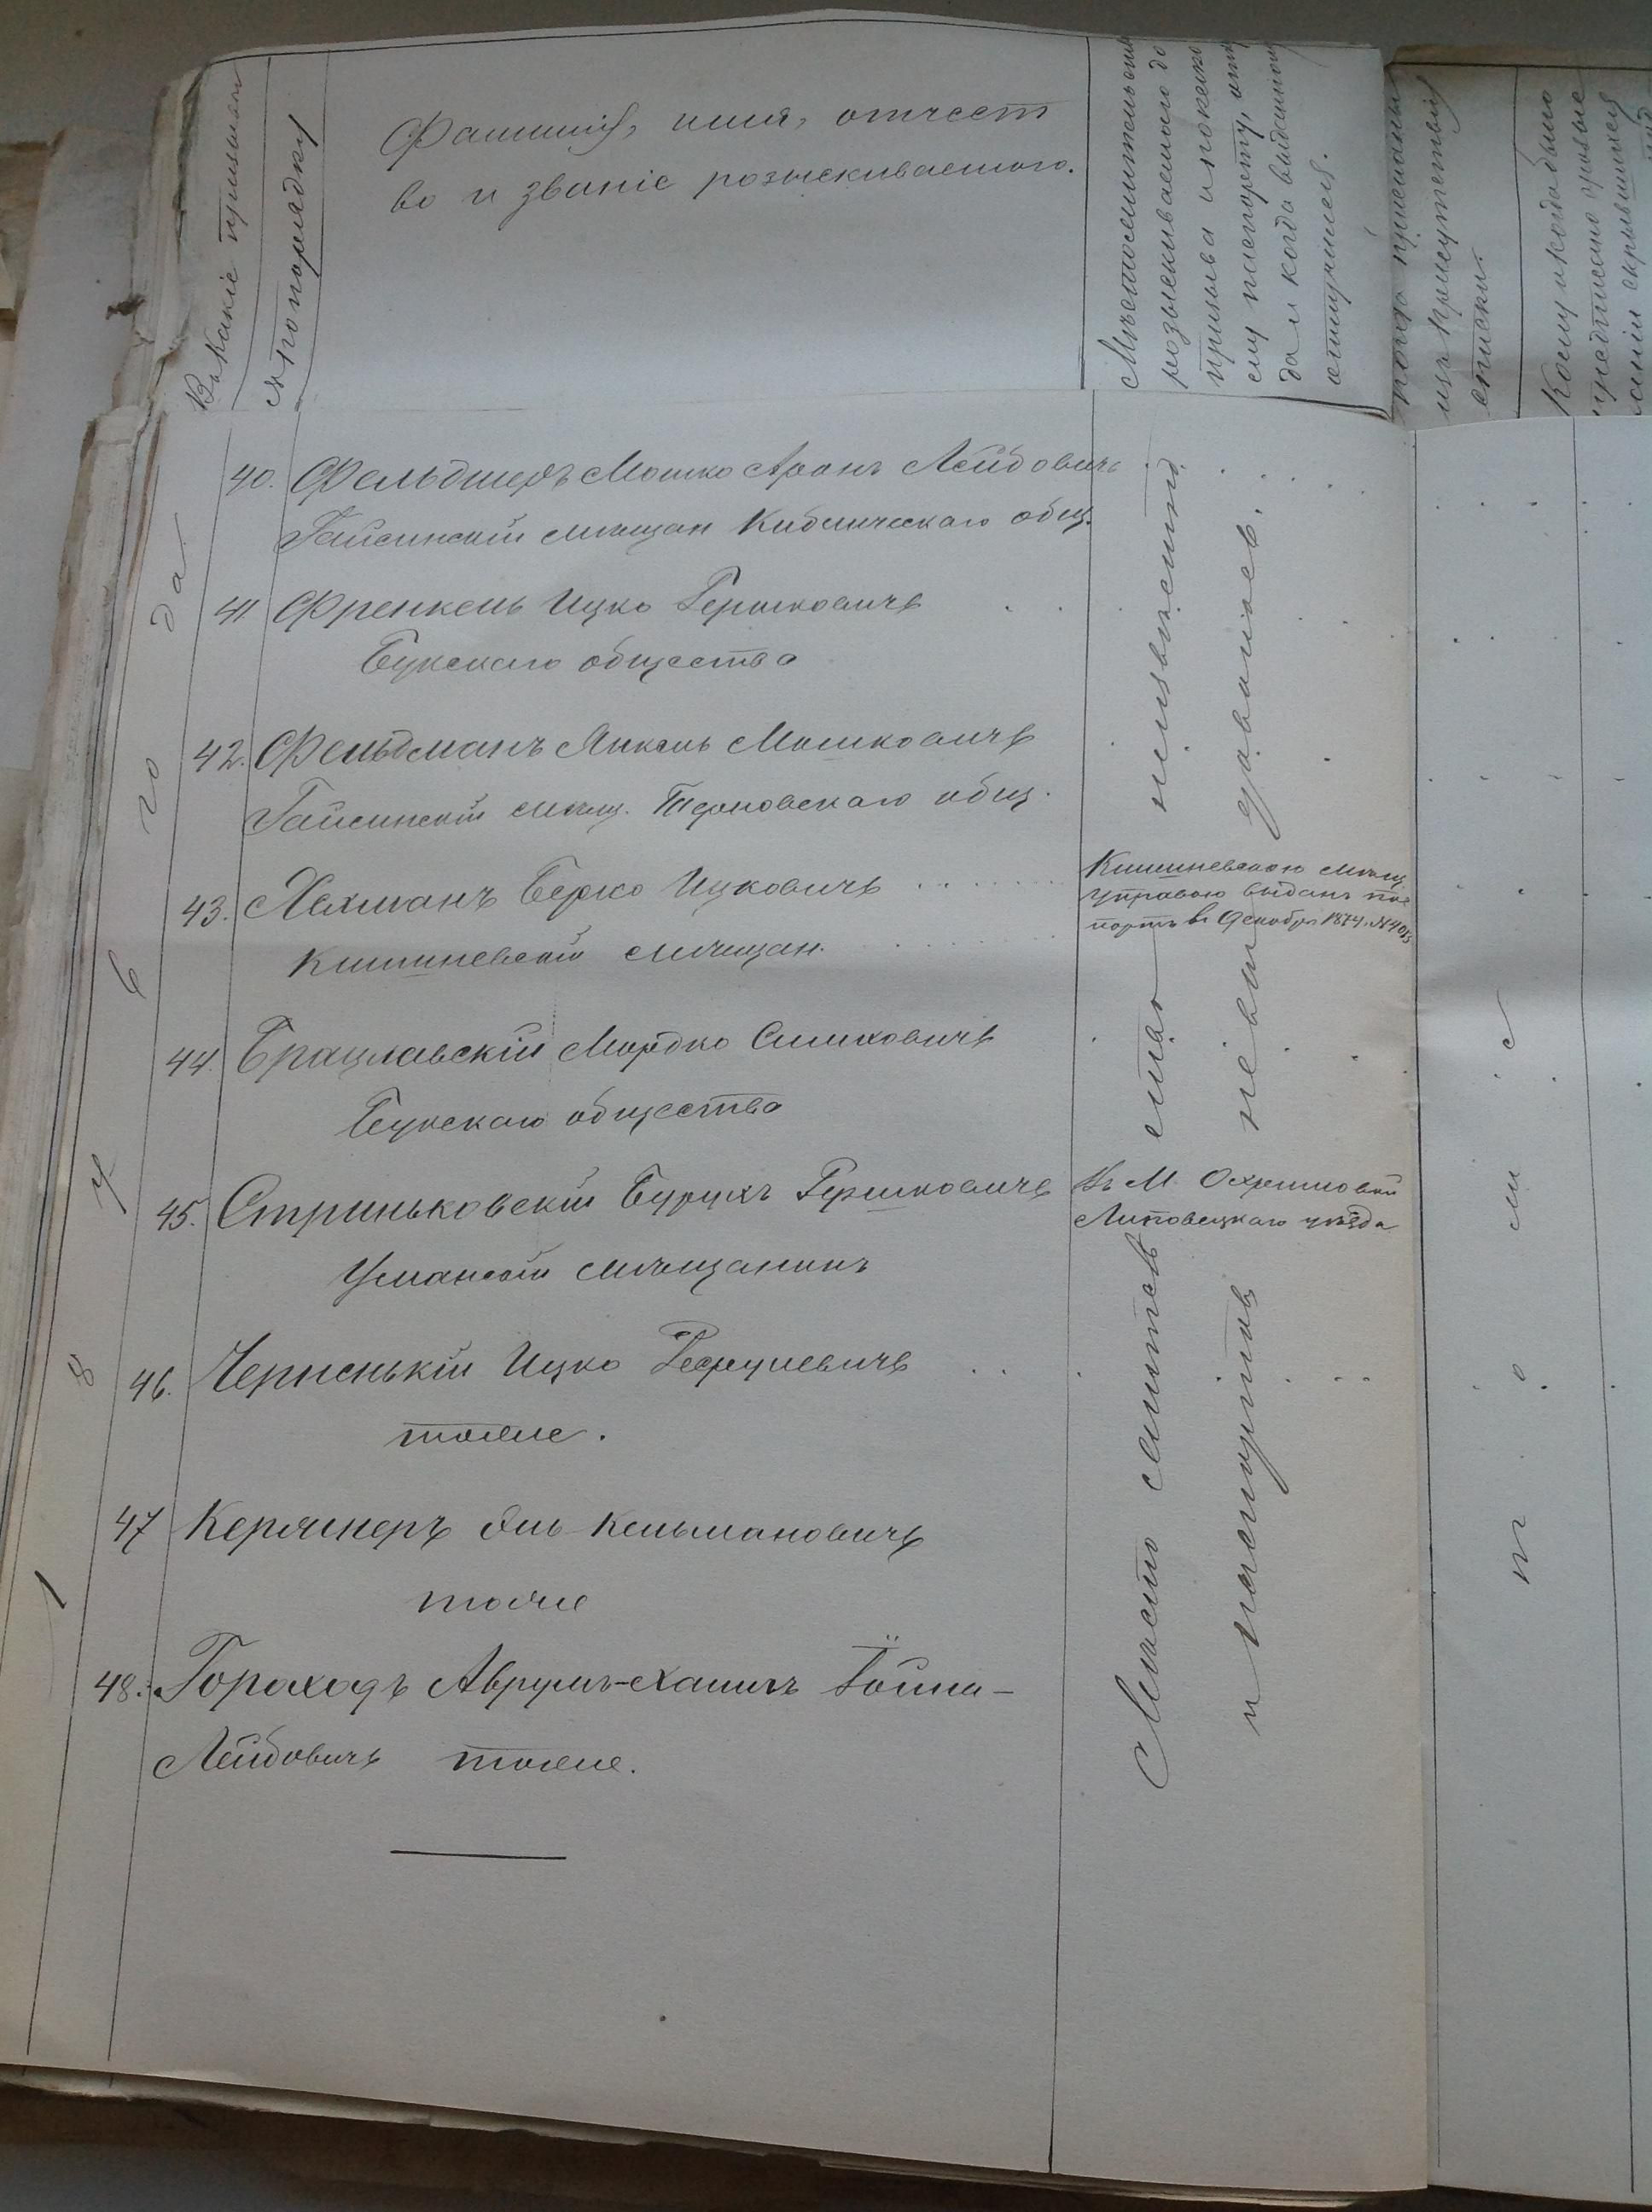 Въ какіе призывы
№ по порядку
Фамилія, имя, отчест
во и званіе розыскиваемого.
Мѣстожительства
розыскиваемого до
призыва и по како
му паспорту,
да и когда выданному
отлучился.
изъ присутствія
списки.
Кому и когда было
предписано
скрывшимся
40. Фельдшеръ Мошко Аронъ Лейбовичъ
Гайсинскій мѣщан Кибличскаго общ.
41 Френкель Ицко Гершковичъ
Букскаго общества
42. Фельдманъ Янкель Мошковичъ
Гайсинскій мѣщ. Терновскаго общ.
43. Лехманъ Берко Ицковичъ
Кишиневскій мѣщан.
Кишиневскою мѣщ
управою выданъ пас
портъ въ Декабрѣ 1874. №
44. Брацлавскій Мордко Симховичъ
Букскаго общества
45. Стриньковскій Бурухъ Гершковичъ
Уманскій мѣщанинъ
Въ М.
Липовецкаго уѣзда
46. Черненькій Ицко
тоже.
47 Кержнеръ Эль Кельмановичъ
тоже
48. Гороходъ Аврумъ-Хаимъ Іойна-
Лейбовичъ тоже.
187 года
Мѣсто жительство неизвѣстно
и паспортовъ не выдавалось.